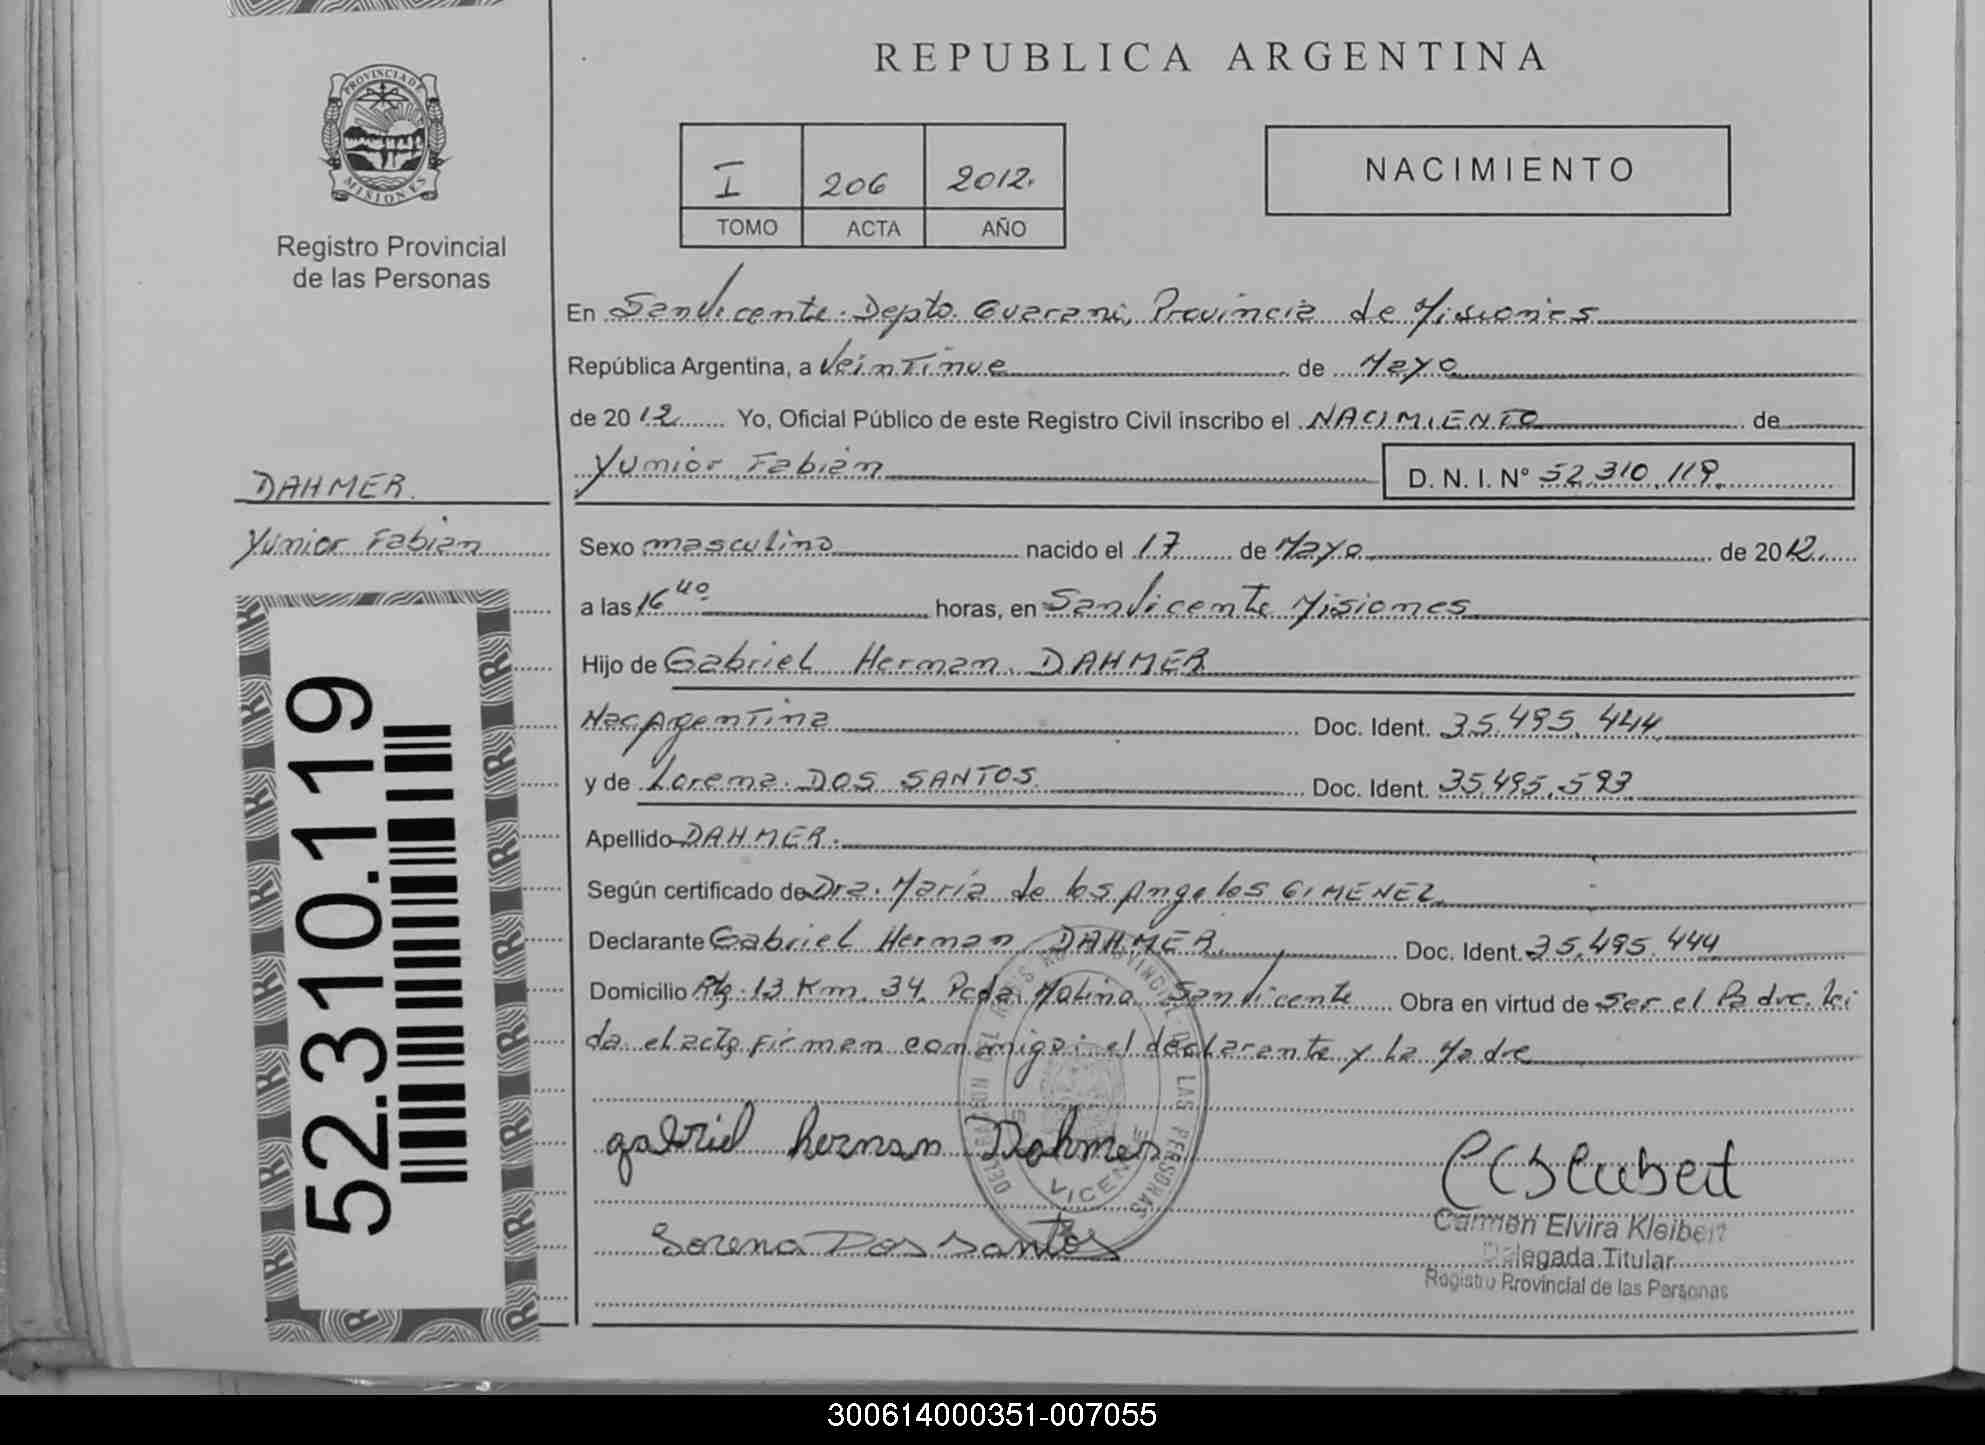 REPUBLICA ARGENTINA
PROVINCIA DE
MISIONES
Registro Provincial
de las Personas
I 206 2012.
TOMO ACTA AÑO
NACIMIENTO
En San Vicente. Depto. Guarani, Provincia de Misiones
República Argentina, a Veintinue de Mayo
de 2012 Yo, Oficial Público de este Registro Civil inscribo el NACIMIENTO de
Yunior Fabián D. N. I. Nº 52.310.119
DAHMER.
Yunior Fabián
Sexo masculino nacido el 17 de Mayo de 2012
a las 16 40 horas, en San Vicente Misiones
Hijo de Gabriel Hernan DAHMER
Nac Argentina Doc. Ident. 35.495.444
y de Lorena DOS SANTOS Doc. Ident. 35.495.593
Apellido DAHMER.
Según certificado de Dra. María de los Angeles GIMENEZ
Declarante Gabriel Hernan DAHMER. Doc. Ident. 35.495.444
Domicilio Rta. 13 Km. 34. Pcda. Molino San Vicente Obra en virtud de ser el Padre. lei
da el acta firman conmigo: el declarante y la Madre
gabriel hernan Dahmer
Lorena Dos santos
Carmen Elvira Kleibert
Delegada Titular
Registro Provincial de las Personas
52.310.119
300614000351-007055